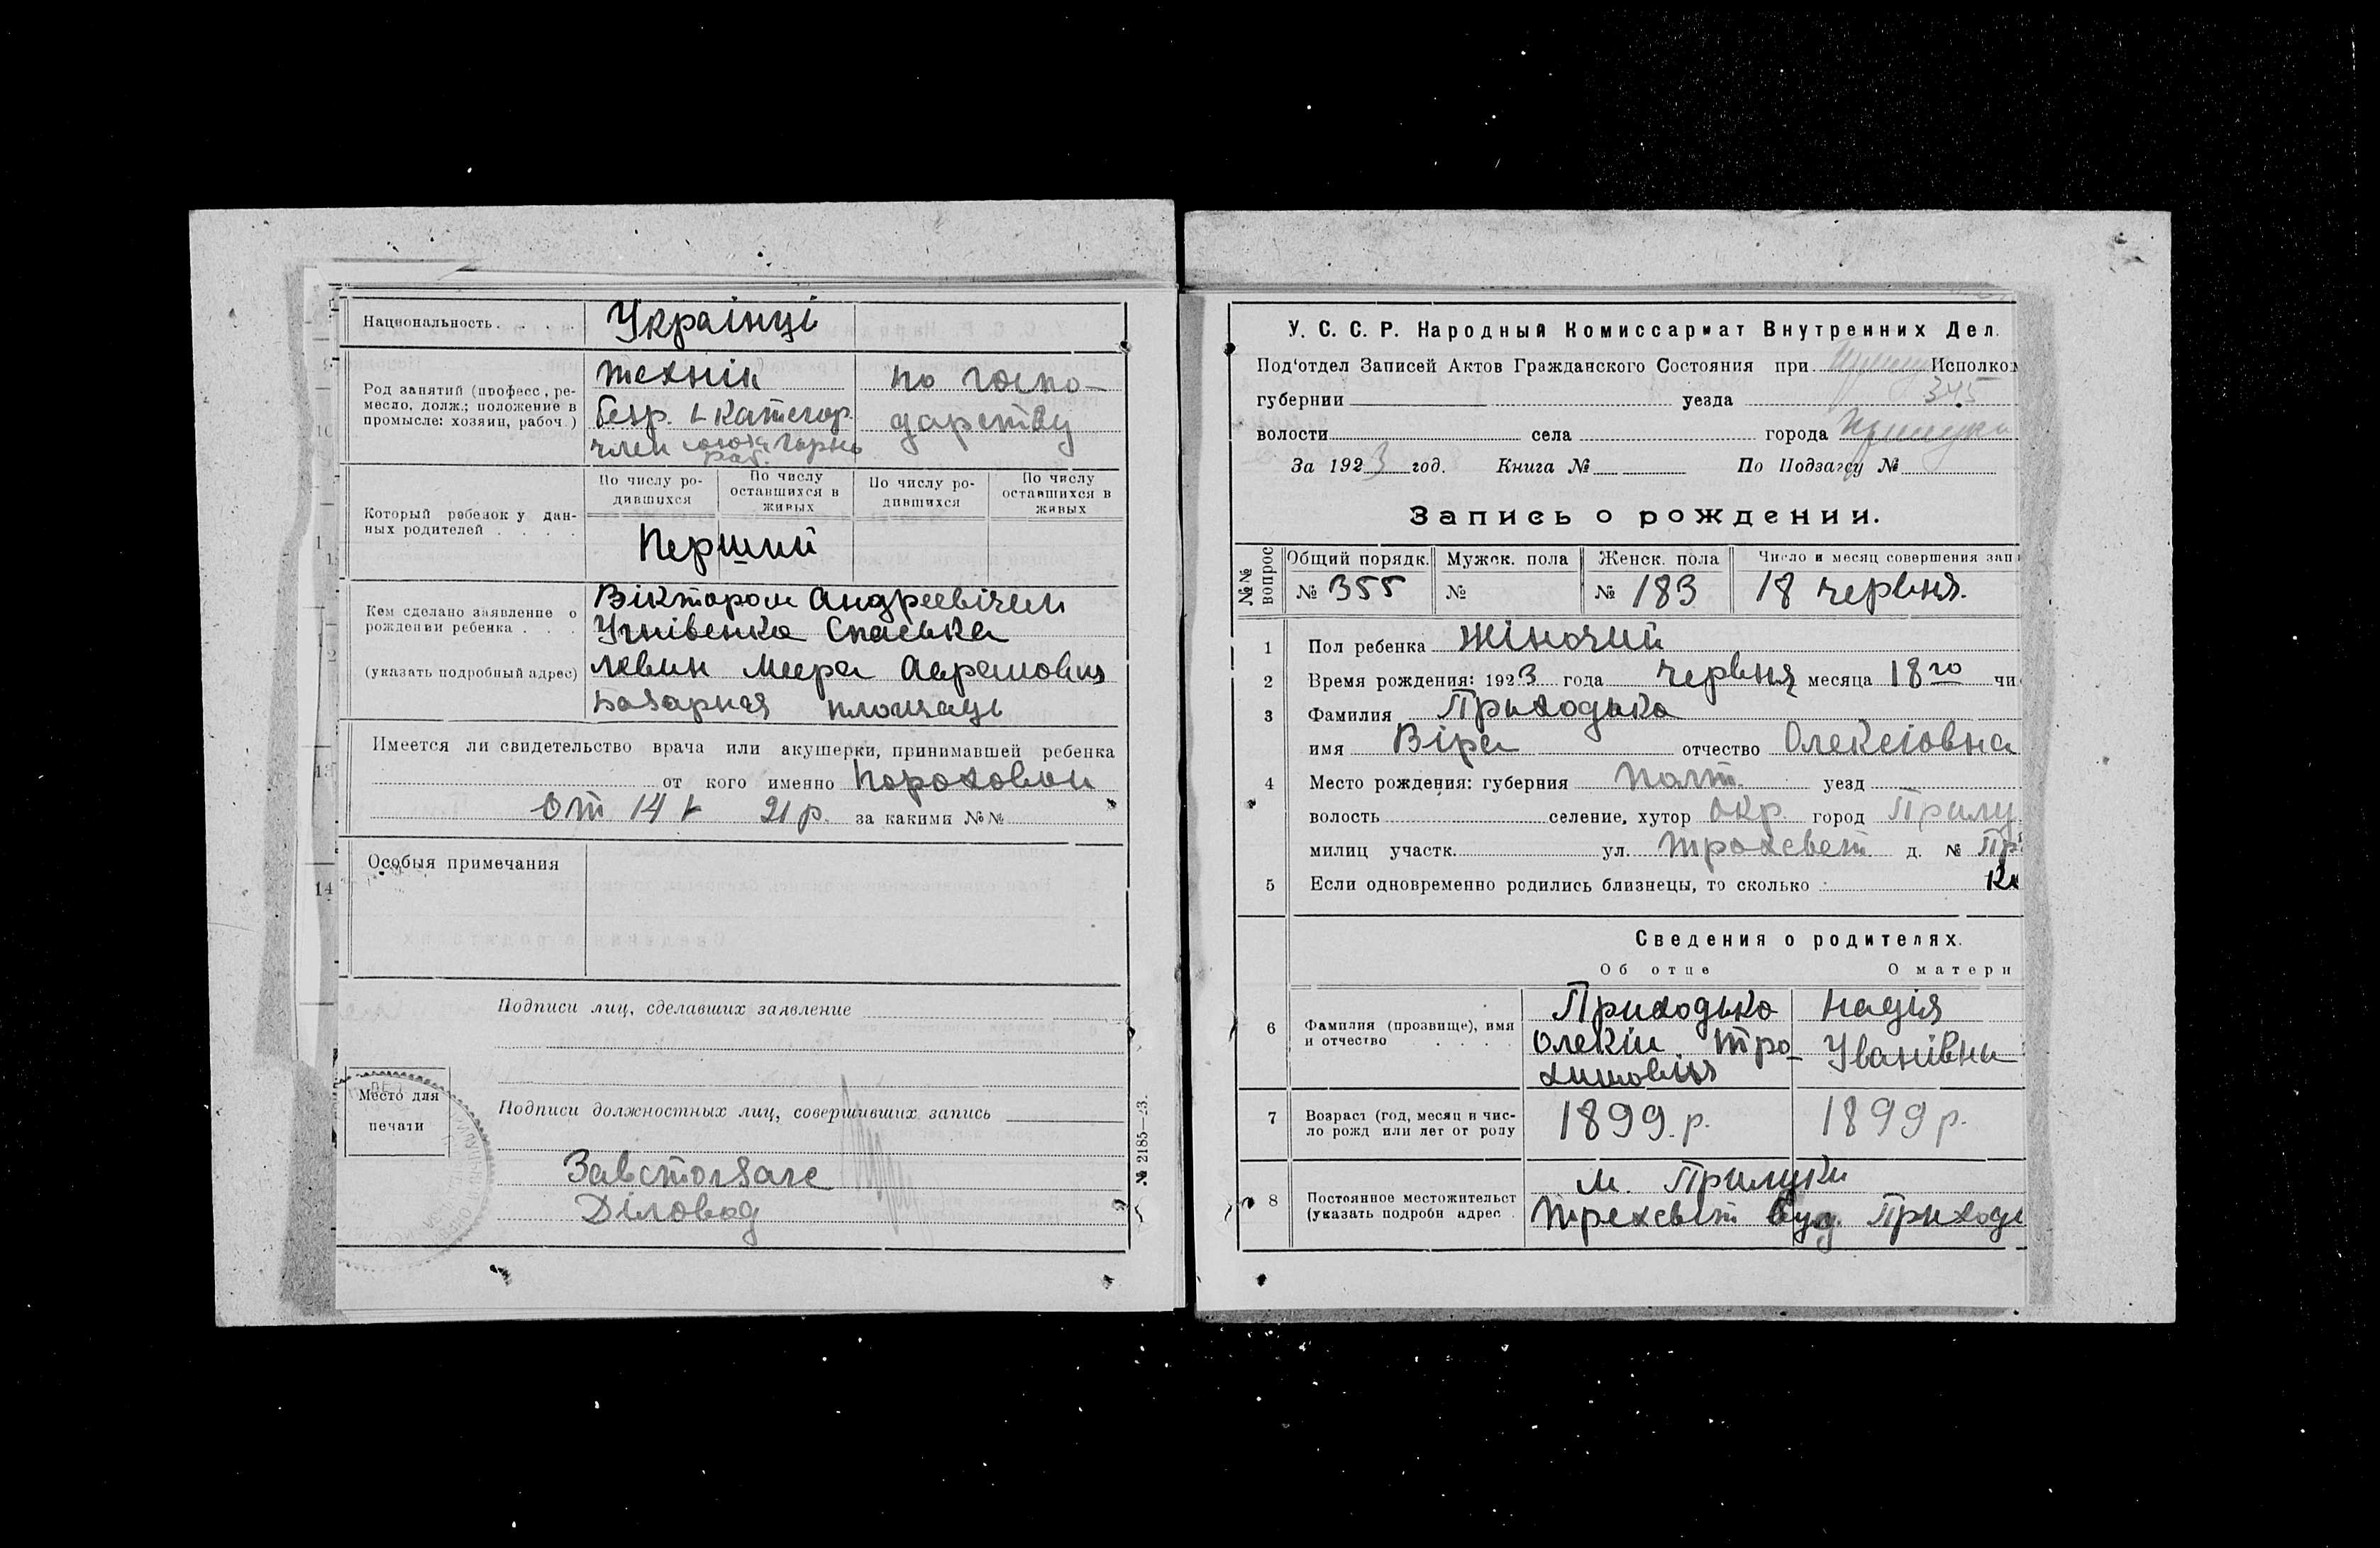 Национальность
Українці
Род занятий (професс, ре-
месло, долж.; положение в
промысле: хозяин, рабоч.)
технік
безр. 1 категор.
член союза Горно
раб.
по госпо-
дарству
Который ребенок у дан-
ных родителей
По числу ро-
дившихся
По числу
оставшихся в
живых
По числу ро-
дившихся
По числу
оставшихся в
живых
Перший
Кем сделано заявление о
рождении ребенка
(указать подробный адрес)
Віктором Андреевічем
Угнівенко Спаська
Левин Меера Аврамовия
Базарная площадь
Имеется ли свидетельство врача или акушерки, принимавшей ребенка
от кого именно Пороховои
От 14 21 р. за какими №№
Особыя примечания
Подписи лиц, сделавших заявление
Место для
печати
Подписи должностных лиц, совершивших запись
Завстолзагс
Діловод
№ 2185—23.
У. С. С. Р. Народный Комиссариат Внутренних Дел.
Под'отдел Записей Актов Гражданского Состояния при Исполком
345
губернии уезда
волости села города Прилуки
За 1923 год. Книга № По Подзагсу №
Запись о рождении.
№№
вопрос
Общий порядк.
Мужск. пола
Женск. пола
Число и месяц совершения зап
№ 355
№
№ 183
18 червня.
1 Пол ребенка Жіночий
2 Время рождения: 1923 года червня месяца 18го чи
3 Фамилия Приходько
имя Віра отчество Олексіовна
4 Место рождения: губерния Полт. уезд
волость селение, хутор Окр. город Прилу
милиц участк. ул. Трохсвет д. № Пр
5 Если одновременно родились близнецы, то сколько
Сведения о родителях.
Об отце
О матери
6 Фамилия (прозвище), имя
и отчество
Приходько
Олексій Тро-
химовия
Надія
Уванівни
7 Возраст (год, месяц и чис-
ло рожд или лет от роду
1899.р.
1899 р.
8 Постоянное местожительст
(указать подробн адрес
м. Прилуки
Трехсвіт буд. Приходь